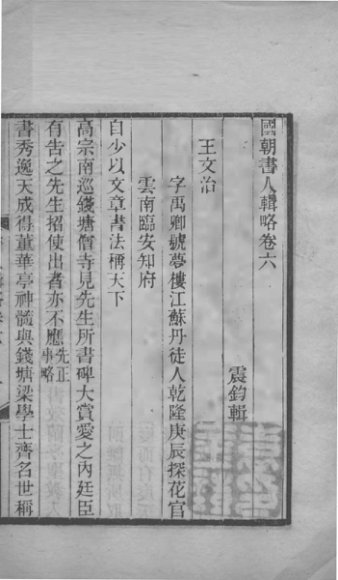 國朝書人輯略卷六
震鈞輯
王文治
字禹卿號夢樓江蘇丹徒人乾隆庚辰探花官
雲南臨安知府
自少以文章書法稱天下
高宗南巡錢塘僧寺見先生所書碑大賞愛之內廷臣
有告之先生招使出者亦不應先正事略
書秀逸天成得董華亭神髓與錢塘梁學士齊名世稱